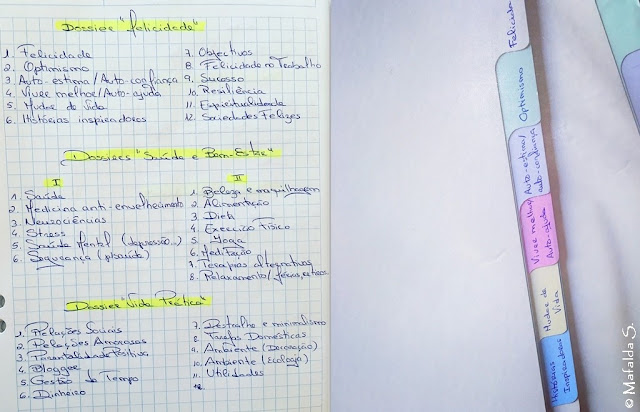 Dossier "Felicidade"
1. Felicidade
2. Optimismo
3. Auto-estima/Auto-confiança
4. Viver melhor/Auto-ajuda
5. Mudar de Vida
6. Histórias inspiradoras
7. Objectivos
8. Felicidade no Trabalho
9. Sucesso
10. Resiliência
11. Espiritualidade
12. Sociedades Felizes
Dossiers "Saúde e Bem-Estar"
I
1. Saúde
2. Medicina anti-envelhecimento
3. Neurociências
4. Stress
5. Saúde Mental (depressão..)
6. Segurança (p/saúde)
II
1. Beleza e maquilhagem
2. Alimentação
3. Dieta
4. Exercício Físico
5. Yoga
6. Meditação
7. Terapias alternativas
8. Relaxamento/férias,
Dossier "Vida Prática"
1. Relações Sociais
2. Relações Amorosas
3. Parentalidade Positiva
4. Blogger
5. Gestão do Tempo
6. Dinheiro
7. Destralhe e minimalismo
8. Tarefas Domésticas
9. Ambiente (Decoração)
10. Ambiente (Ecologia)
11. Utilidades
12.
Felicidade
Optimismo
Auto-estima/
auto-confiança
Viver melhor/
Auto-ajuda
Mudar de
Vida
Histórias
Inspiradoras
© Mafalda S.